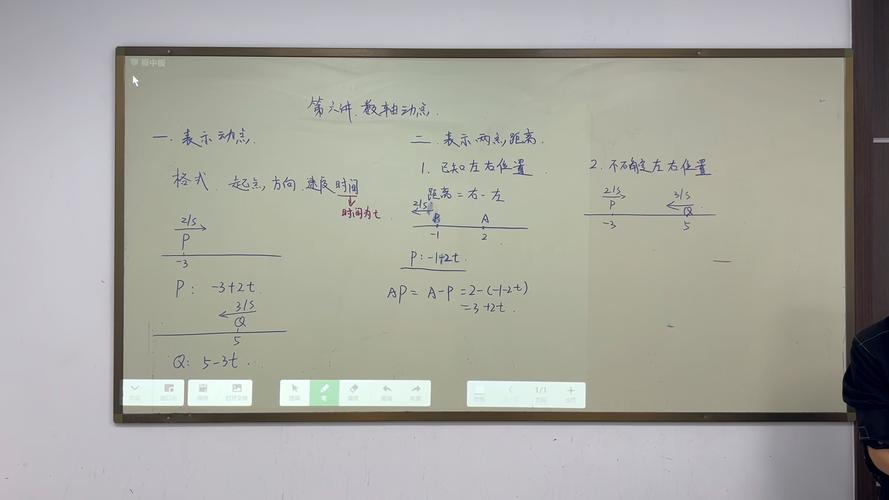 第六讲.数轴动点.
一.表示动点.
格式.起点,方向.速度时间
时间为t
2/s
P
-3
P: -3+2t
3/s
Q
5
Q: 5-3t.
二.表示两点距离.
1.已知左右位置
距离=右-左
2/s
A
-1
2
AP= A-P =2-(-1-2t)
=3+2t.
2.不确定左右位置
2/s
P
-3
3/s
Q
5
1/1